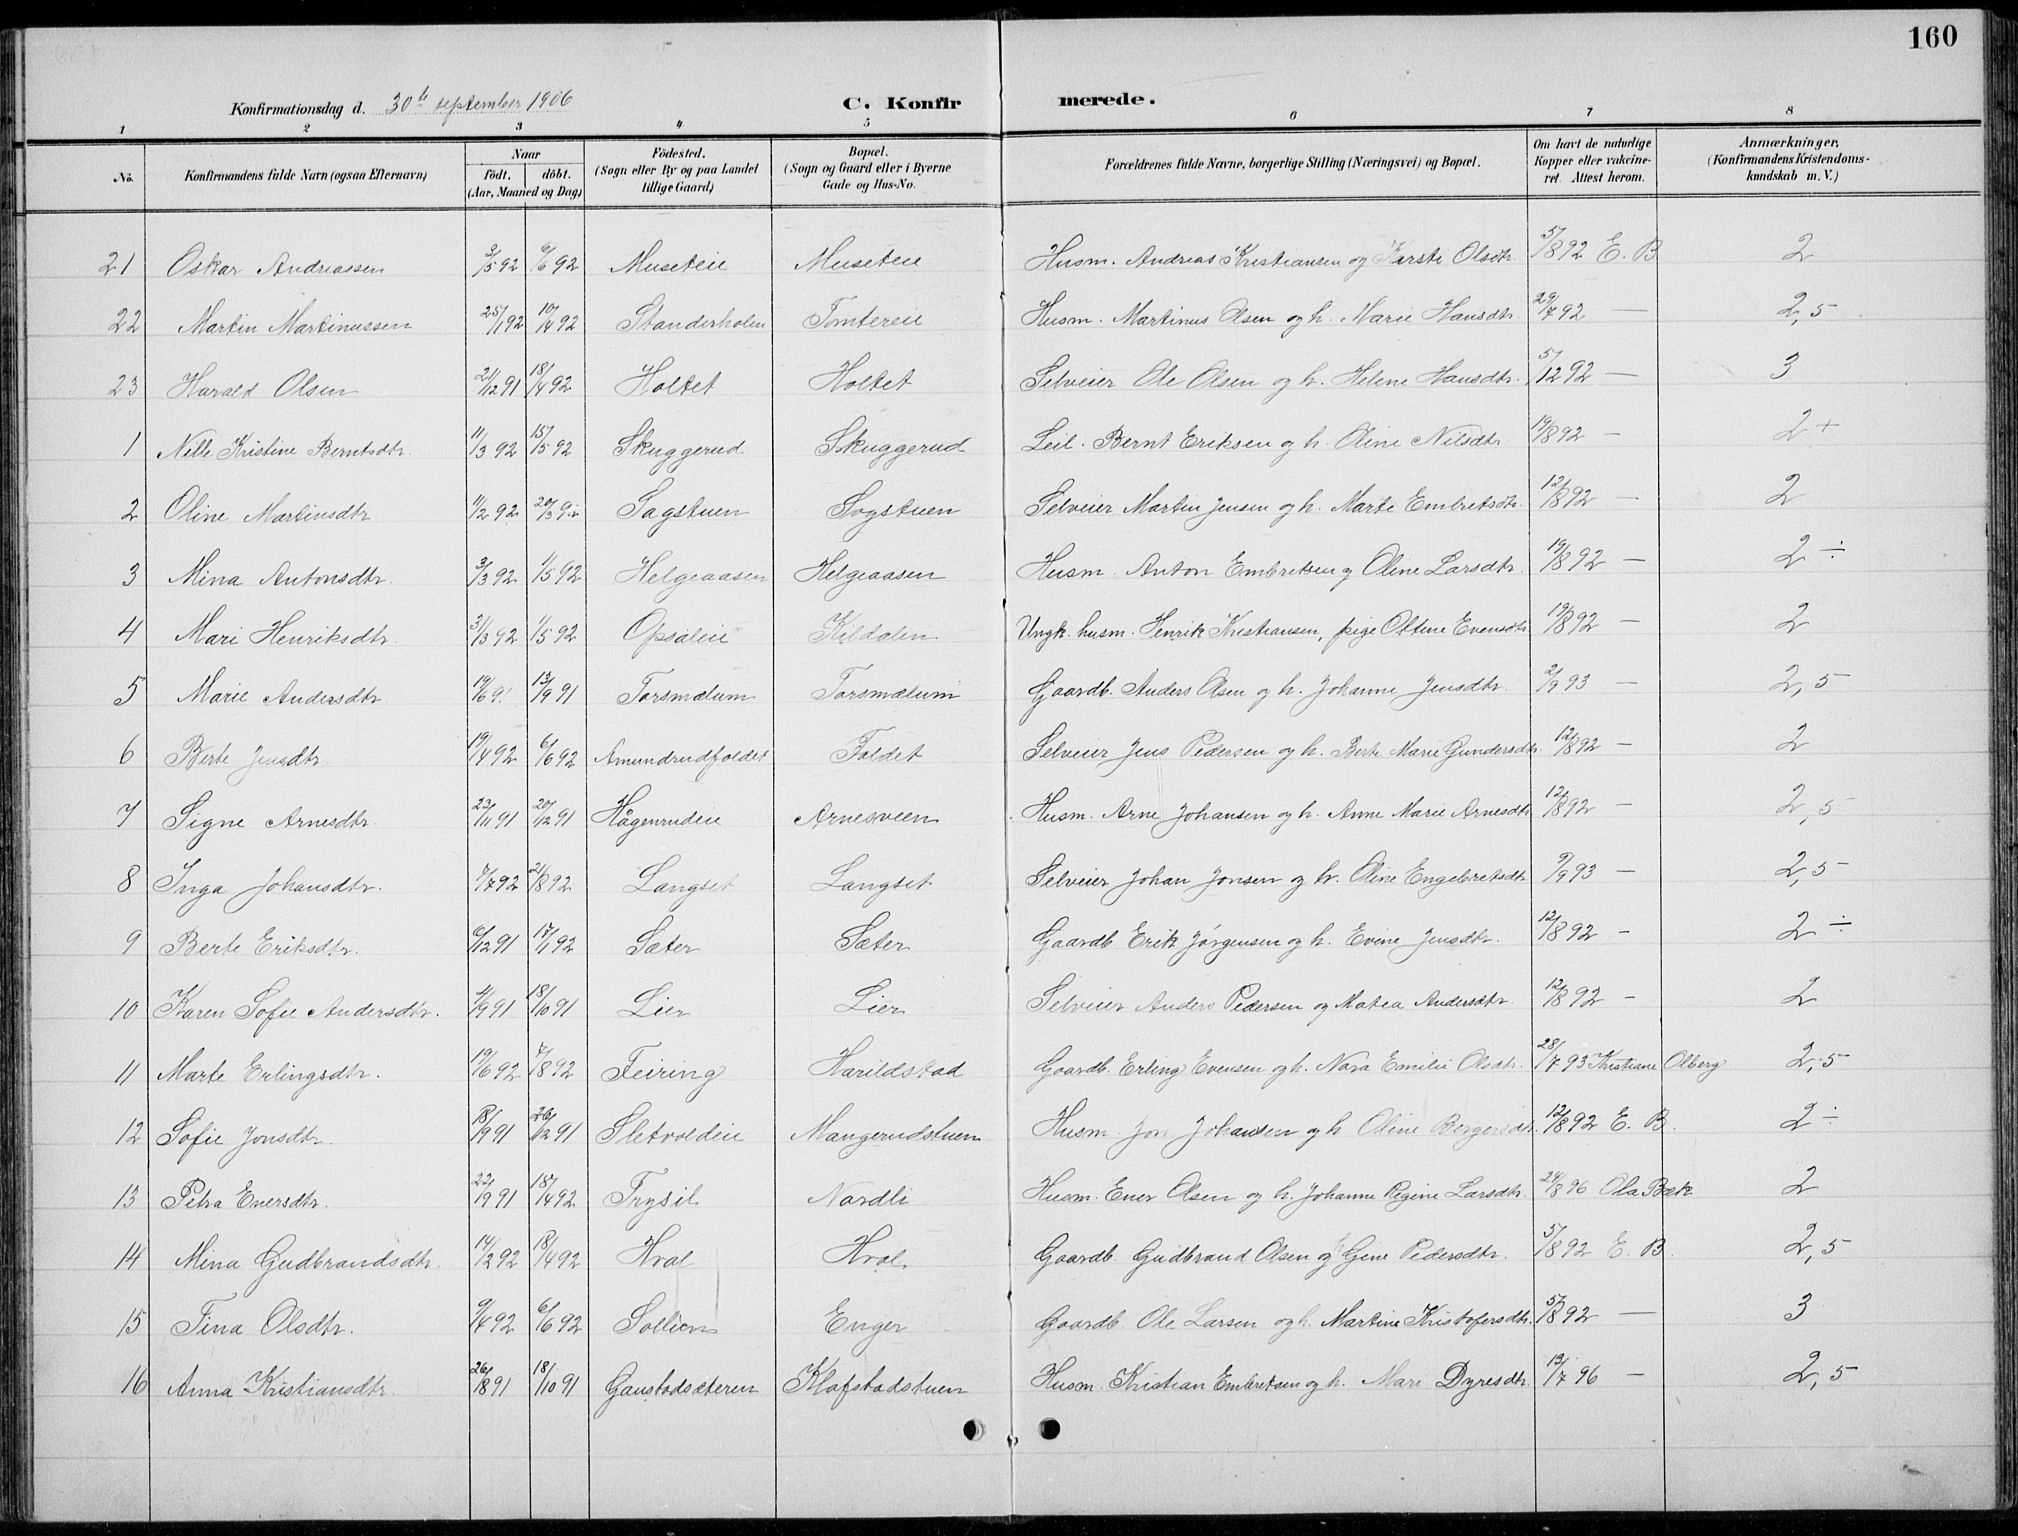 160
Konfirmationsdag d. 30te september 1906 C. Konfirmerede.
1 2 3 4 5 6 7 8
No. Konfirmandens fulde Navn (ogsaa Efternavn) Naar födt. döbt. (Aar, Maaned og Dag) Födested. (Sogn eller By og paa Landet tillige Gaard) Bopæl. (Sogn og Gaard eller i Byerne Gade og Hus-No. Forældrenes fulde Navne, borgerlige Stilling (Næringsvei) og Bopæl. Om havt de naturlige Kopper eller vakcineret. Attest herom. Anmærkninger, (Konfirmandens Kristendomskundskab m. V.)
21 Oskar Andreassen 3/5 92 6/6 92 Museteie Museteie Husm. Andreas Kristiansen og Kirsti Olsdtr. 5/8 92 E. B 2
22 Martin Martinussen 25/1 92 10/4 92 Standerholen Tomtereie Husm. Martinus Olsen og h. Marie Hansdtr. 29/7 92 — 2,5
23 Harald Olsen 21/12 91 18/4 92 Holtet Holtet Selveier Ole Olsen og h. Helene Hansdtr. 5/12 92 — 3
1 Nille Kristine Berntsdtr. 11/3 92 15/5 92 Skuggerud Skuggerud Leil. Bernt Eriksen og h. Oline Nilsdtr 19/8 92 — 2+
2 Oline Martinsdtr 11/2 92 20/3 92 Sagstuen Sogstuen Selveier Martin Jensen og h. Marte Embretsdtr. 12/8 92 — 2
3 Mina Antonsdtr. 3/3 92 1/5 92 Helgeaasen Helgeaasen Husm. Anton Embretsen og Oline Larsdtr. 19/8 92 — 2 ÷
4 Mari Henriksdtr. 31/3 92 1/5 92 Opsaleie Kildalen Ungk. husm. Henrik Kristiansen, pige Oltine Evensdtr 19/8 92 — 2
5 Marie Andersdtr 19/6 91 13/9 91 Torsmælum Torsmælum Gaardb. Anders Olsen og h. Johanne Jensdtr. 2/9 93 — 2,5
6 Berte Jensdtr. 19/4 92 6/6 92 Amundrudfoldet Foldet Selveier Jens Pedersen og h. Berte Marie Gundersdtr. 12/8 92 — 2
7 Signe Arnesdtr. 23/11 91 20/12 91 Hågenrudeie Arnesveen Husm. Arne Johansen og h. Anne Marie Arnesdtr 12/8 92 — 2,5
8 Inga Johansdtr. 7/7 92 21/8 92 Langset Langset Selveier Johan Jonsen og h. Oline Engebretsdtr 9/9 93 — 2,5
9 Berte Eriksdtr. 6/12 91 17/1 92 Sæter Sæter Gaardb Erik Jørgensen og h. Evine Jensdtr. 12/8 92 — 2 ÷
10 Karen Sofie Andersdtr. 4/9 91 18/10 91 Lier Lier Selveier Anders Pedersen og Matea Andersdtr. 12/8 92 — 2
11 Marte Erlingsdtr. 19/6 92 7/8 92 Feiring Harildstad Gaardb. Erling Evensen og h. Nora Emilie Olsdtr. 28/7 93 Kristiane Olberg 2,5
12 Sofie Jonsdtr. 18/9 91 26/12 91 Sletvoldeie Mangerudstuen Husm. Jon Johansen og h Oline Bergersdtr. 12/8 92 E. B. 2 ÷
13 Petra Enersdtr. 22/9 91 18/4 92 Trysil Nordli Husm. Ener Olsen og h. Johanne Regine Larsdtr. 24/8 96 Ola Bæk 2
14 Mina Gudbrandsdtr. 14/2 92 18/4 92 Hval Hval Gaardb. Gudbrand Olsen og Gine Pedersdtr. 5/8 92 E. B. 2,5
15 Tina Olsdtr. 9/4 92 6/6 92 Sollien Enger Gaardb. Ole Larsen og h. Martine Kristofersdtr. 5/8 92 — 3
16 Anna Kristiansdtr. 26/8 91 18/10 91 Gaustadsæteren Klofstadstuen Husm. Kristian Embretsen og h. Mari Dyresdtr. 13/7 96 — 2,5